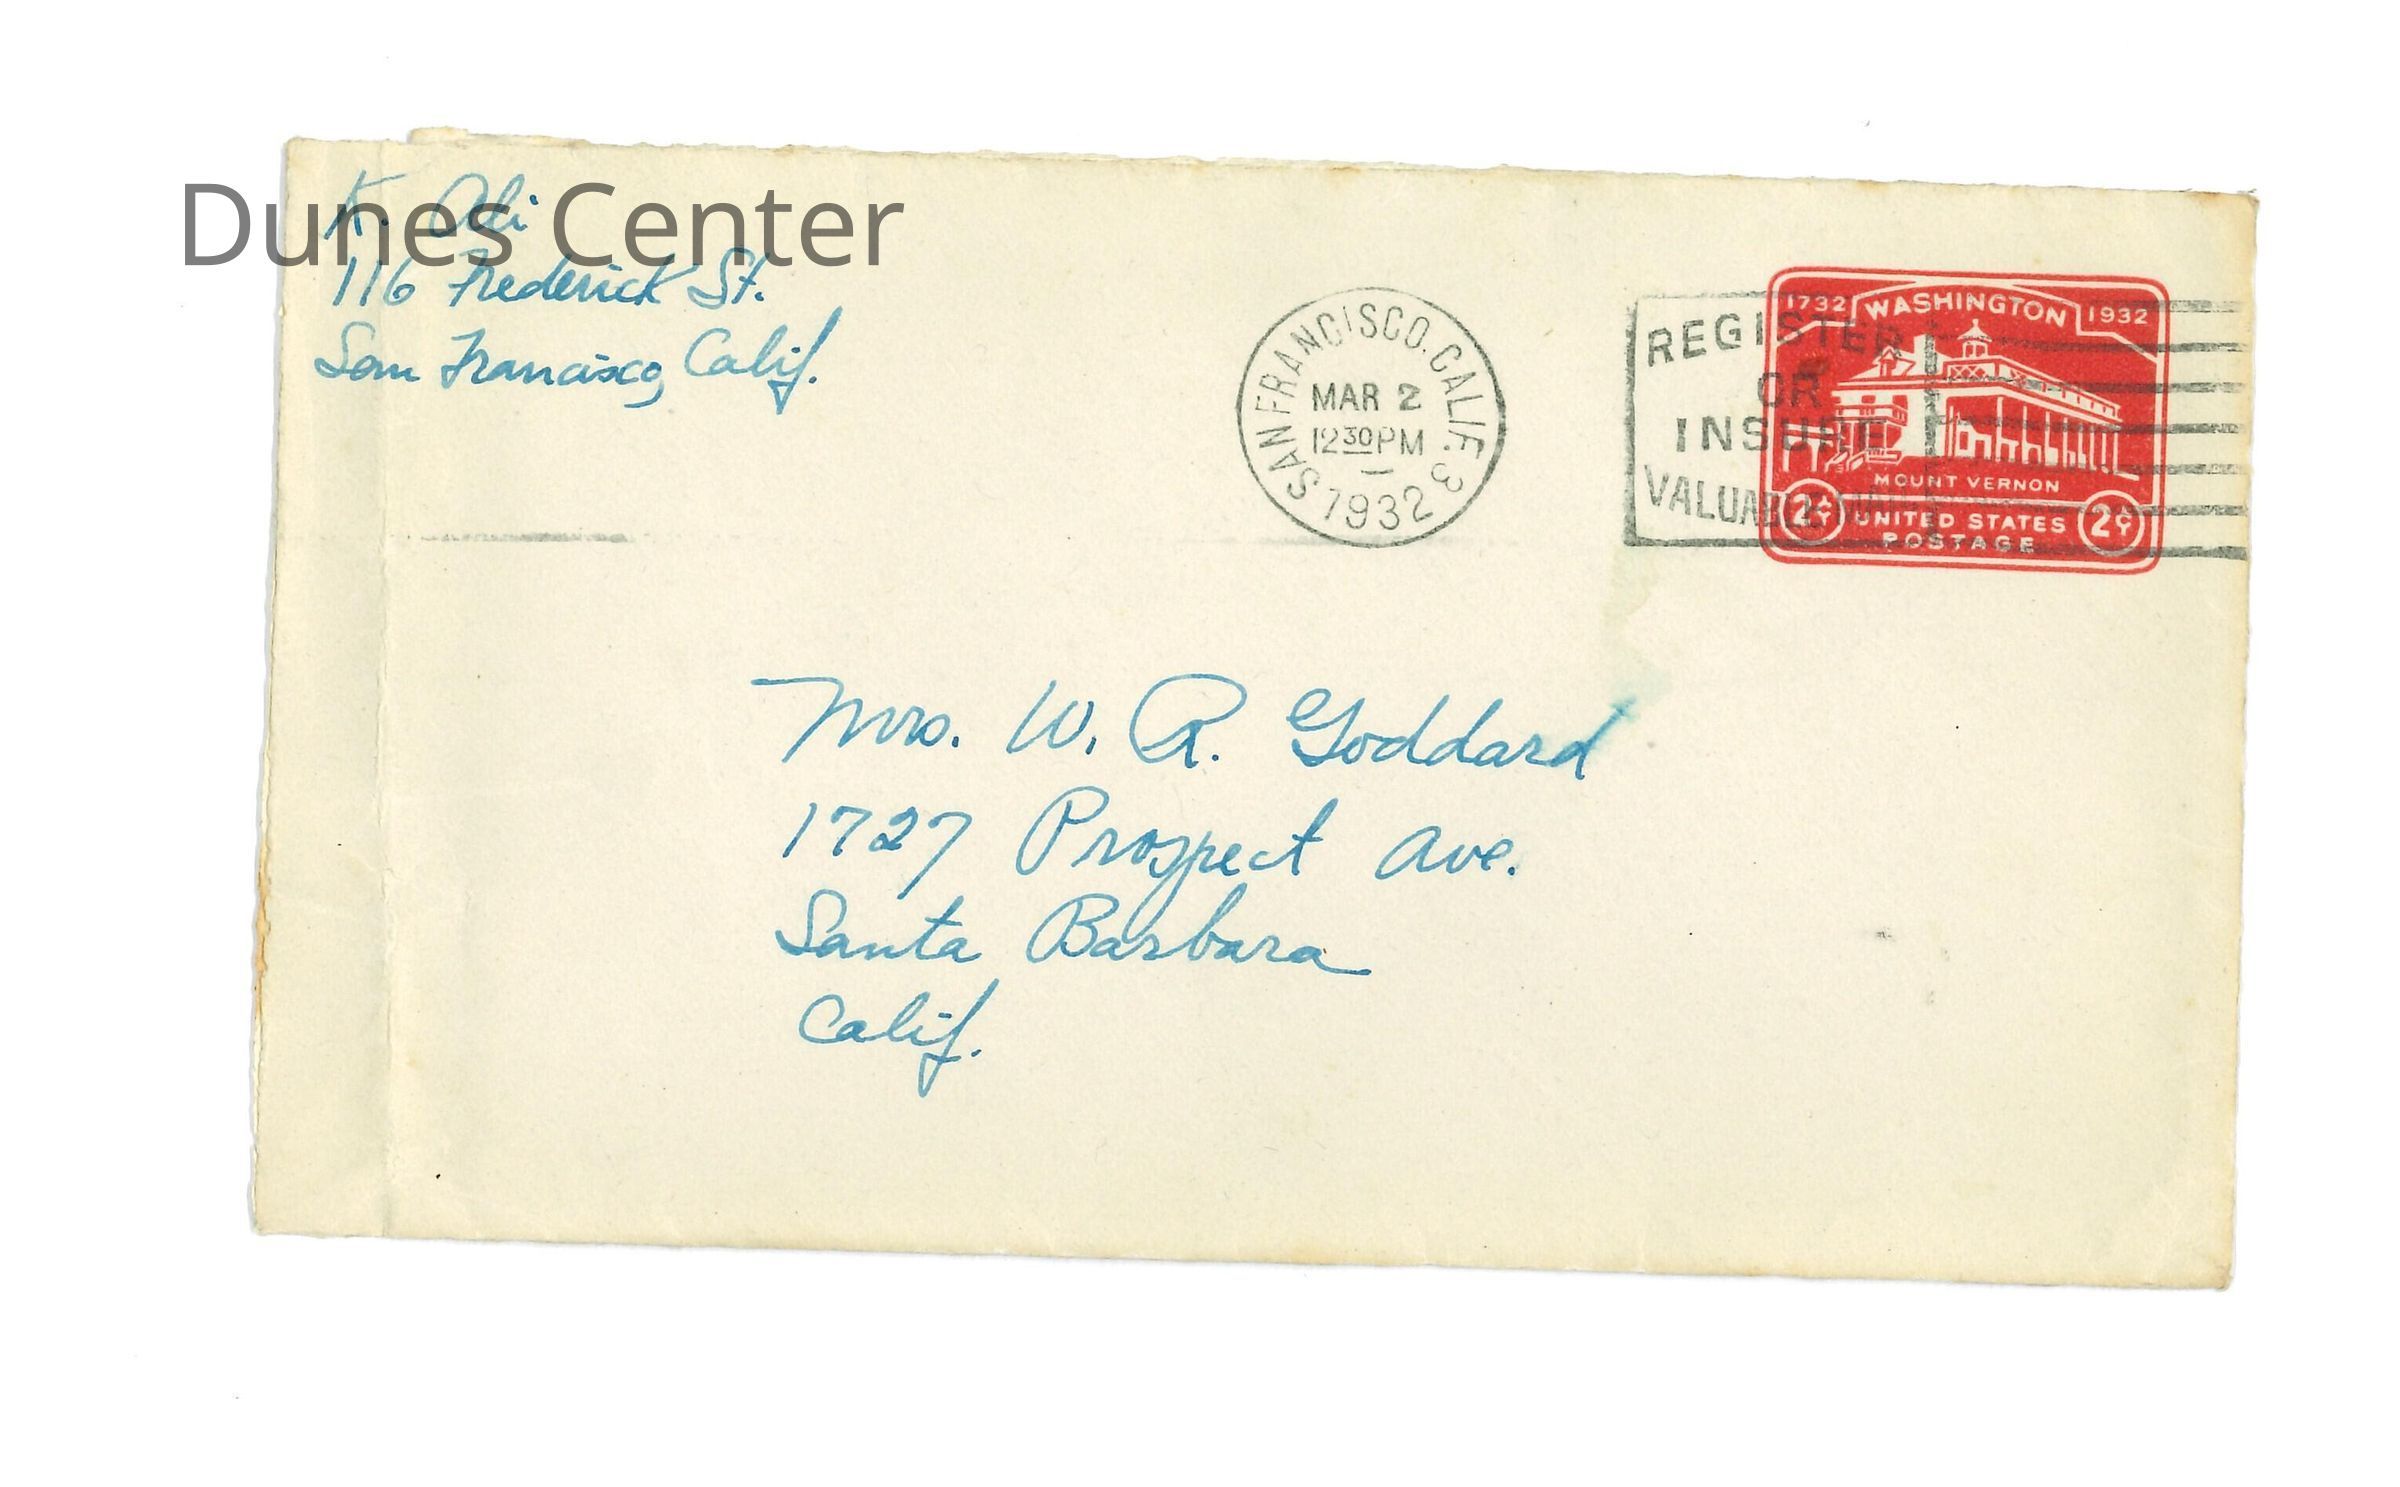 Dunes Center
K. Ali
116 Frederick St.
San Francisco, Calif.
SAN FRANCISCO. CALIF. 3
MAR 2
12 30 PM
1932
REGISTER
OR
INSURE
VALUABLE MAIL
1732 WASHINGTON 1932
MOUNT VERNON
2¢ UNITED STATES 2¢
POSTAGE
Mrs. W. R. Goddard
1727 Prospect Ave.
Santa Barbara
Calif.